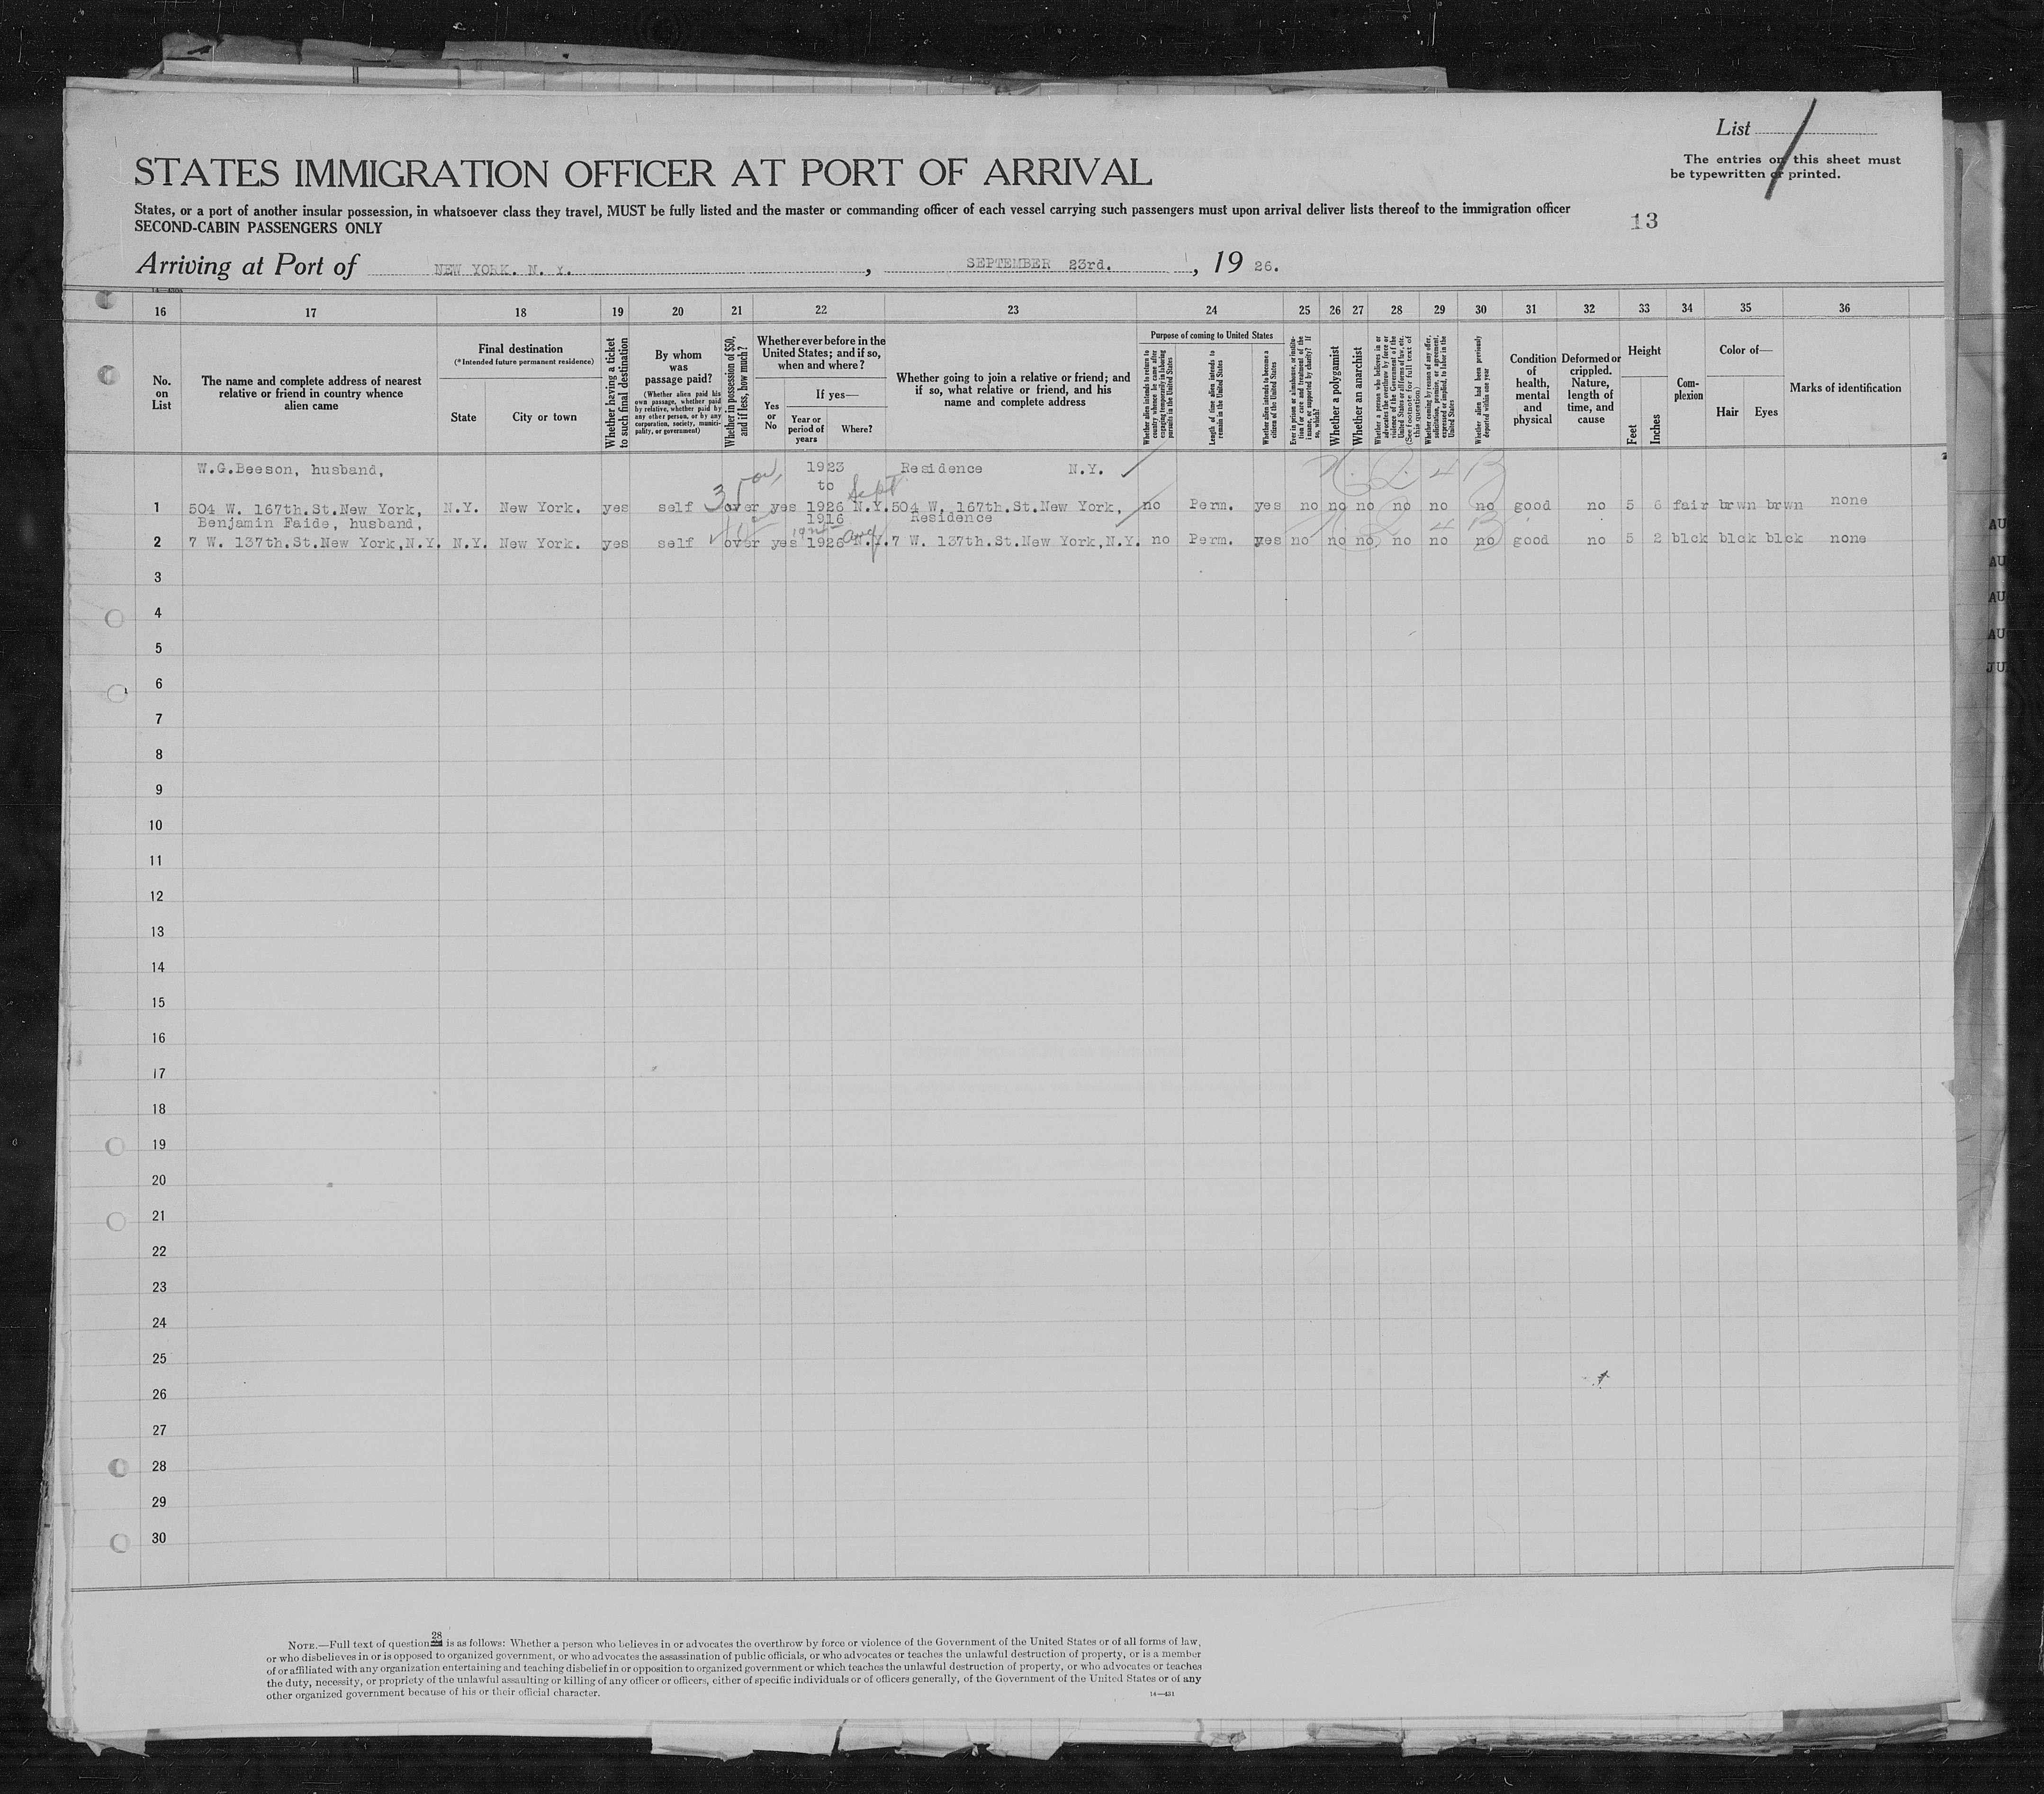 List
The entries on this sheet must
be typewritten or printed.
STATES IMMIGRATION OFFICER AT PORT OF ARRIVAL
States, or a port of another insular possession, in whatsoever class they travel, MUST be fully listed and the master or commanding officer of each vessel carrying such passengers must upon arrival deliver lists thereof to the immigration officer
SECOND-CABIN PASSENGERS ONLY
13
Arriving at Port of NEW YORK. N. Y. , SEPTEMBER 23rd. , 19 26.
16 17 18 19 20 21 22 23 24 25 26 27 28 29 30 31 32 33 34 35 36
No.
on
List
The name and complete address of nearest
relative or friend in country whence
alien came
Final destination
(*Intended future permanent residence)
State
City or town
Whether having a ticket
to such final destination
By whom
was
passage paid?
(Whether alien paid his
own passage, whether paid
by relative, whether paid by
any other person, or by any
corporation, society, munici-
pality, or government)
Whether in possession of $50,
and if less, how much?
Whether ever before in the
United States; and if so,
when and where?
Yes
or
No
If yes—
Year or
period of
years
Where?
Whether going to join a relative or friend; and
if so, what relative or friend, and his
name and complete address
Purpose of coming to United States
Whether alien intends to return to
country whence he came after
engaging temporarily in laboring
pursuits in the United States
Length of time alien intends to
remain in the United States
Whether alien intends to become a
citizen of the United States
Ever in prison or almshouse, or institu-
tion for care and treatment of the
insane, or supported by charity? If
so, which?
Whether a polygamist
Whether an anarchist
Whether a person who believes in or
advocates the overthrow by force or
violence of the Government of the
United States or all forms of law, etc.
(See footnote for full text of
this question)
Whether coming by reason of any offer,
solicitation, promise, or agreement,
expressed or implied, to labor in the
United States
Whether alien had been previously
deported within one year
Condition
of
health,
mental
and
physical
Deformed or
crippled.
Nature,
length of
time, and
cause
Height
Feet
Inches
Com-
plexion
Color of—
Hair
Eyes
Marks of identification
W.G.Beeson, husband, 1923 Residence N.Y.
to Sept
1 504 W. 167th.St.New York, N.Y. New York. yes self over yes 1926 N.Y. 504 W. 167th.St.New York, no Perm. yes no no no no no no good no 5 6 fair brwn brwn none
Benjamin Faide, husband, 1916 Residence
2 7 W. 137th.St.New York,N.Y. N.Y. New York. yes self over yes 1926 Aug N.Y. 7 W. 137th.St.New York,N.Y. no Perm. yes no no no no no no good no 5 2 blck blck blck none
3
4
5
6
7
8
9
10
11
12
13
14
15
16
17
18
19
20
21
22
23
24
25
26
27
28
29
30
AU
AU
AU
AU
JU
28
NOTE.—Full text of question is as follows: Whether a person who believes in or advocates the overthrow by force or violence of the Government of the United States or of all forms of law,
or who disbelieves in or is opposed to organized government, or who advocates the assassination of public officials, or who advocates or teaches the unlawful destruction of property, or is a member
of or affiliated with any organization entertaining and teaching disbelief in or opposition to organized government or which teaches the unlawful destruction of property, or who advocates or teaches
the duty, necessity, or propriety of the unlawful assaulting or killing of any officer or officers, either of specific individuals or of officers generally, of the Government of the United States or of any
other organized government because of his or their official character.
14—431